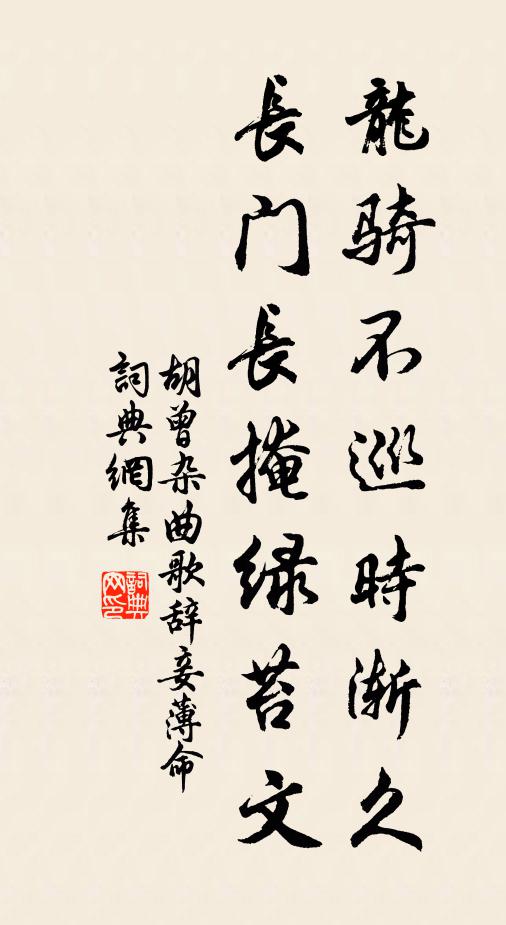 龍骑不巡時渐久
長门長掩绿苔文
胡曾杂曲歌辞妾薄命
詞典網集
詞典网印